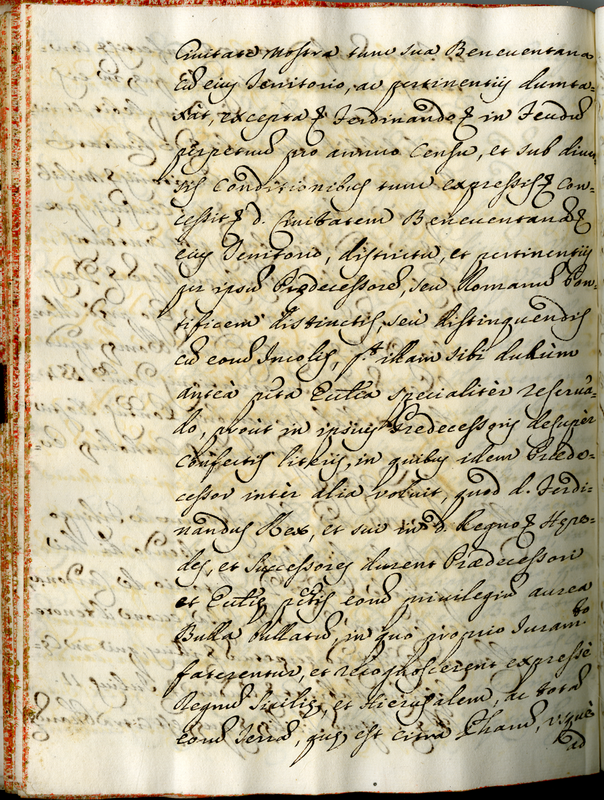 Ciuitate nostra tunc sua Beneuentana
cũ eius Territorio, ac pertinentijs dumta=
xat, excepta Ferdinando in feudũ
perpetuũ pro annuo Censu, et sub diuer
sis Conditionibus tunc expressis Con=
cessit d. Ciuitatem Beneuentanã
eius Territorio, districtu, et pertinentijs
per ipsũ Prędecessorẽ, seu Romanũ Pon
tificem distinctis, seu distinguendis
cũ eorũ Incolis, illam sibi
antea Eccłia specialiter reserua=
do, prout in ipsius Predecessoris desuper
confectis literis, in quibus idem Prede=
cessor inter alia voluit, quod d. Ferdi
nandus Rex, et sui in d. Regno Hęre=
des, et Successores darent Prædecessori
et Eccłię eorũ priuilegiũ aurea
Bulla bullatũ, in quo proprio Iuramto
faterentur, et recognoscerent expressè
Regnũ Sicilię, et Hierusalem, ac totã
eorũ Terrã, quę est citra Pharũ, usque
ad